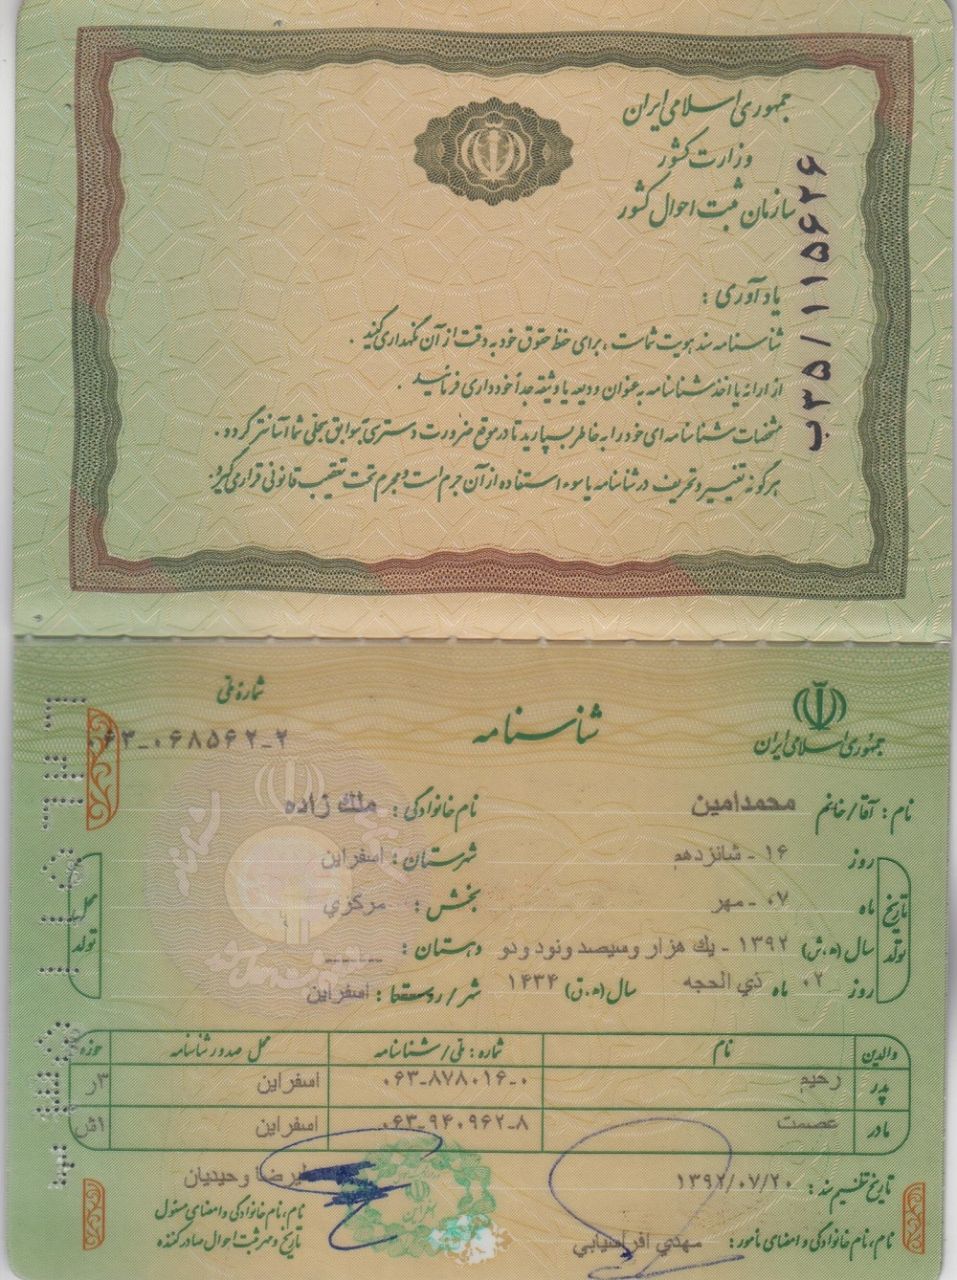 جمهوری اسلامی ایران
وزارت کشور
سازمان ثبت احوال کشور
ب۳۵/۱۱۵۶۲۶
یادآوری :
شناسنامه سند هویت شماست ، برای حفظ حقوق خود به دقت از آن نگهداری کنید .
از ارائه یا اخذ شناسنامه به عنوان ودیعه یا وثیقه جداً خودداری فرمائید .
مشخصات شناسنامه ای خود را به خاطر بسپارید تا در موقع ضرورت دسترسی بسوابق سجلی شما آسانتر گردد .
هرگونه تغییر و تحریف در شناسنامه یا سوء استفاده از آن جرم است و مجرم تحت تعقیب قانونی قرار می گیرد .
جمهوری اسلامی ایران
شناسنامه
شماره ملی
۰۶۳-۰۶۸۵۶۲-۲
نام : آقا/خانم محمدامین نام خانوادگی : ملك زاده
تاریخ تولد
روز ۱۶ - شانزدهم
ماه ۰۷ - مهر
سال (ه.ش) ۱۳۹۲ - يك هزار وسیصد ونود ودو
روز ۰۲ ماه ذي الحجه سال (ه.ق) ۱۴۳۴
محل تولد
شهرستان : اسفراین
بخش : مرکزي
دهستان : ------
شهر / روستا : اسفراین
والدین نام شماره : ملی / شناسنامه محل صدور شناسنامه حوزه
پدر رحیم ۰۶۳-۸۷۸۰۱۶-۰ اسفراین ۳ر
مادر عصمت ۰۶۳-۹۴۰۹۶۲-۸ اسفراین ۱ش
تاریخ تنظیم سند : ۱۳۹۲/۰۷/۲۰
نام ، نام خانوادگی و امضای مأمور : مهدي افراسیابي
علیرضا وحیدیان
نام ، نام خانوادگی و امضای مسئول
تاریخ و مهر ثبت احوال صادر کننده